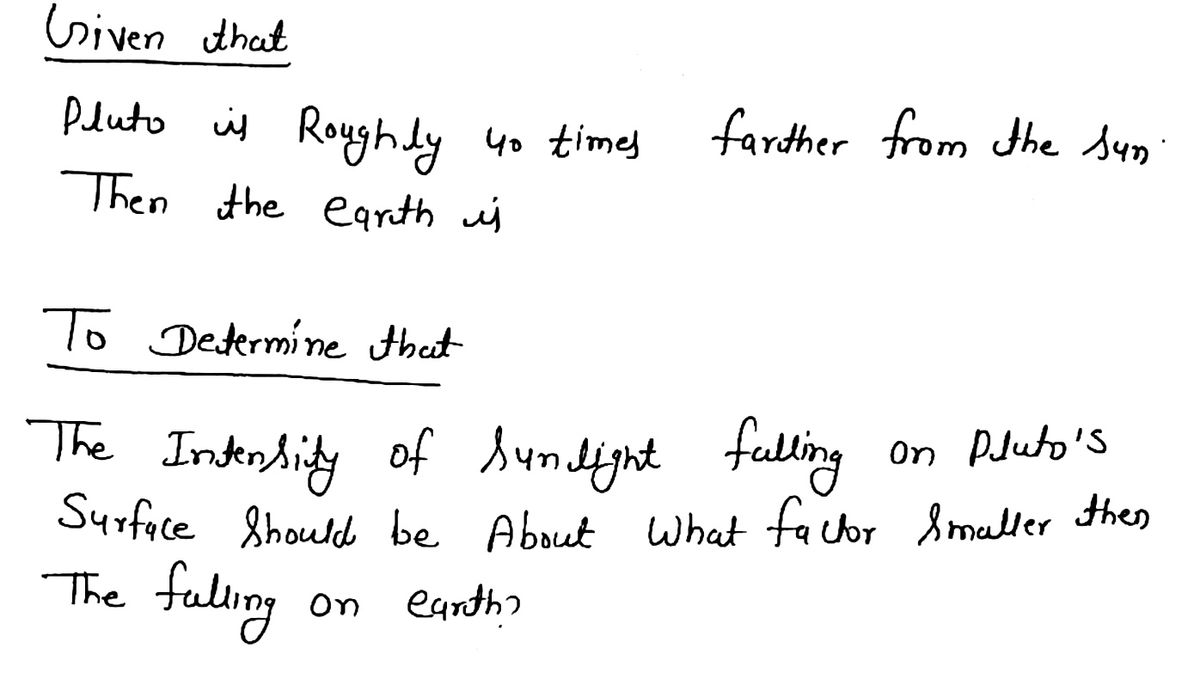 Given that
Pluto is Roughly 40 times farther from the sun.
Then the earth is
To Determine that
The Intensity of sunlight falling on Pluto's
Surface Should be About What factor smaller then
The falling on earth?